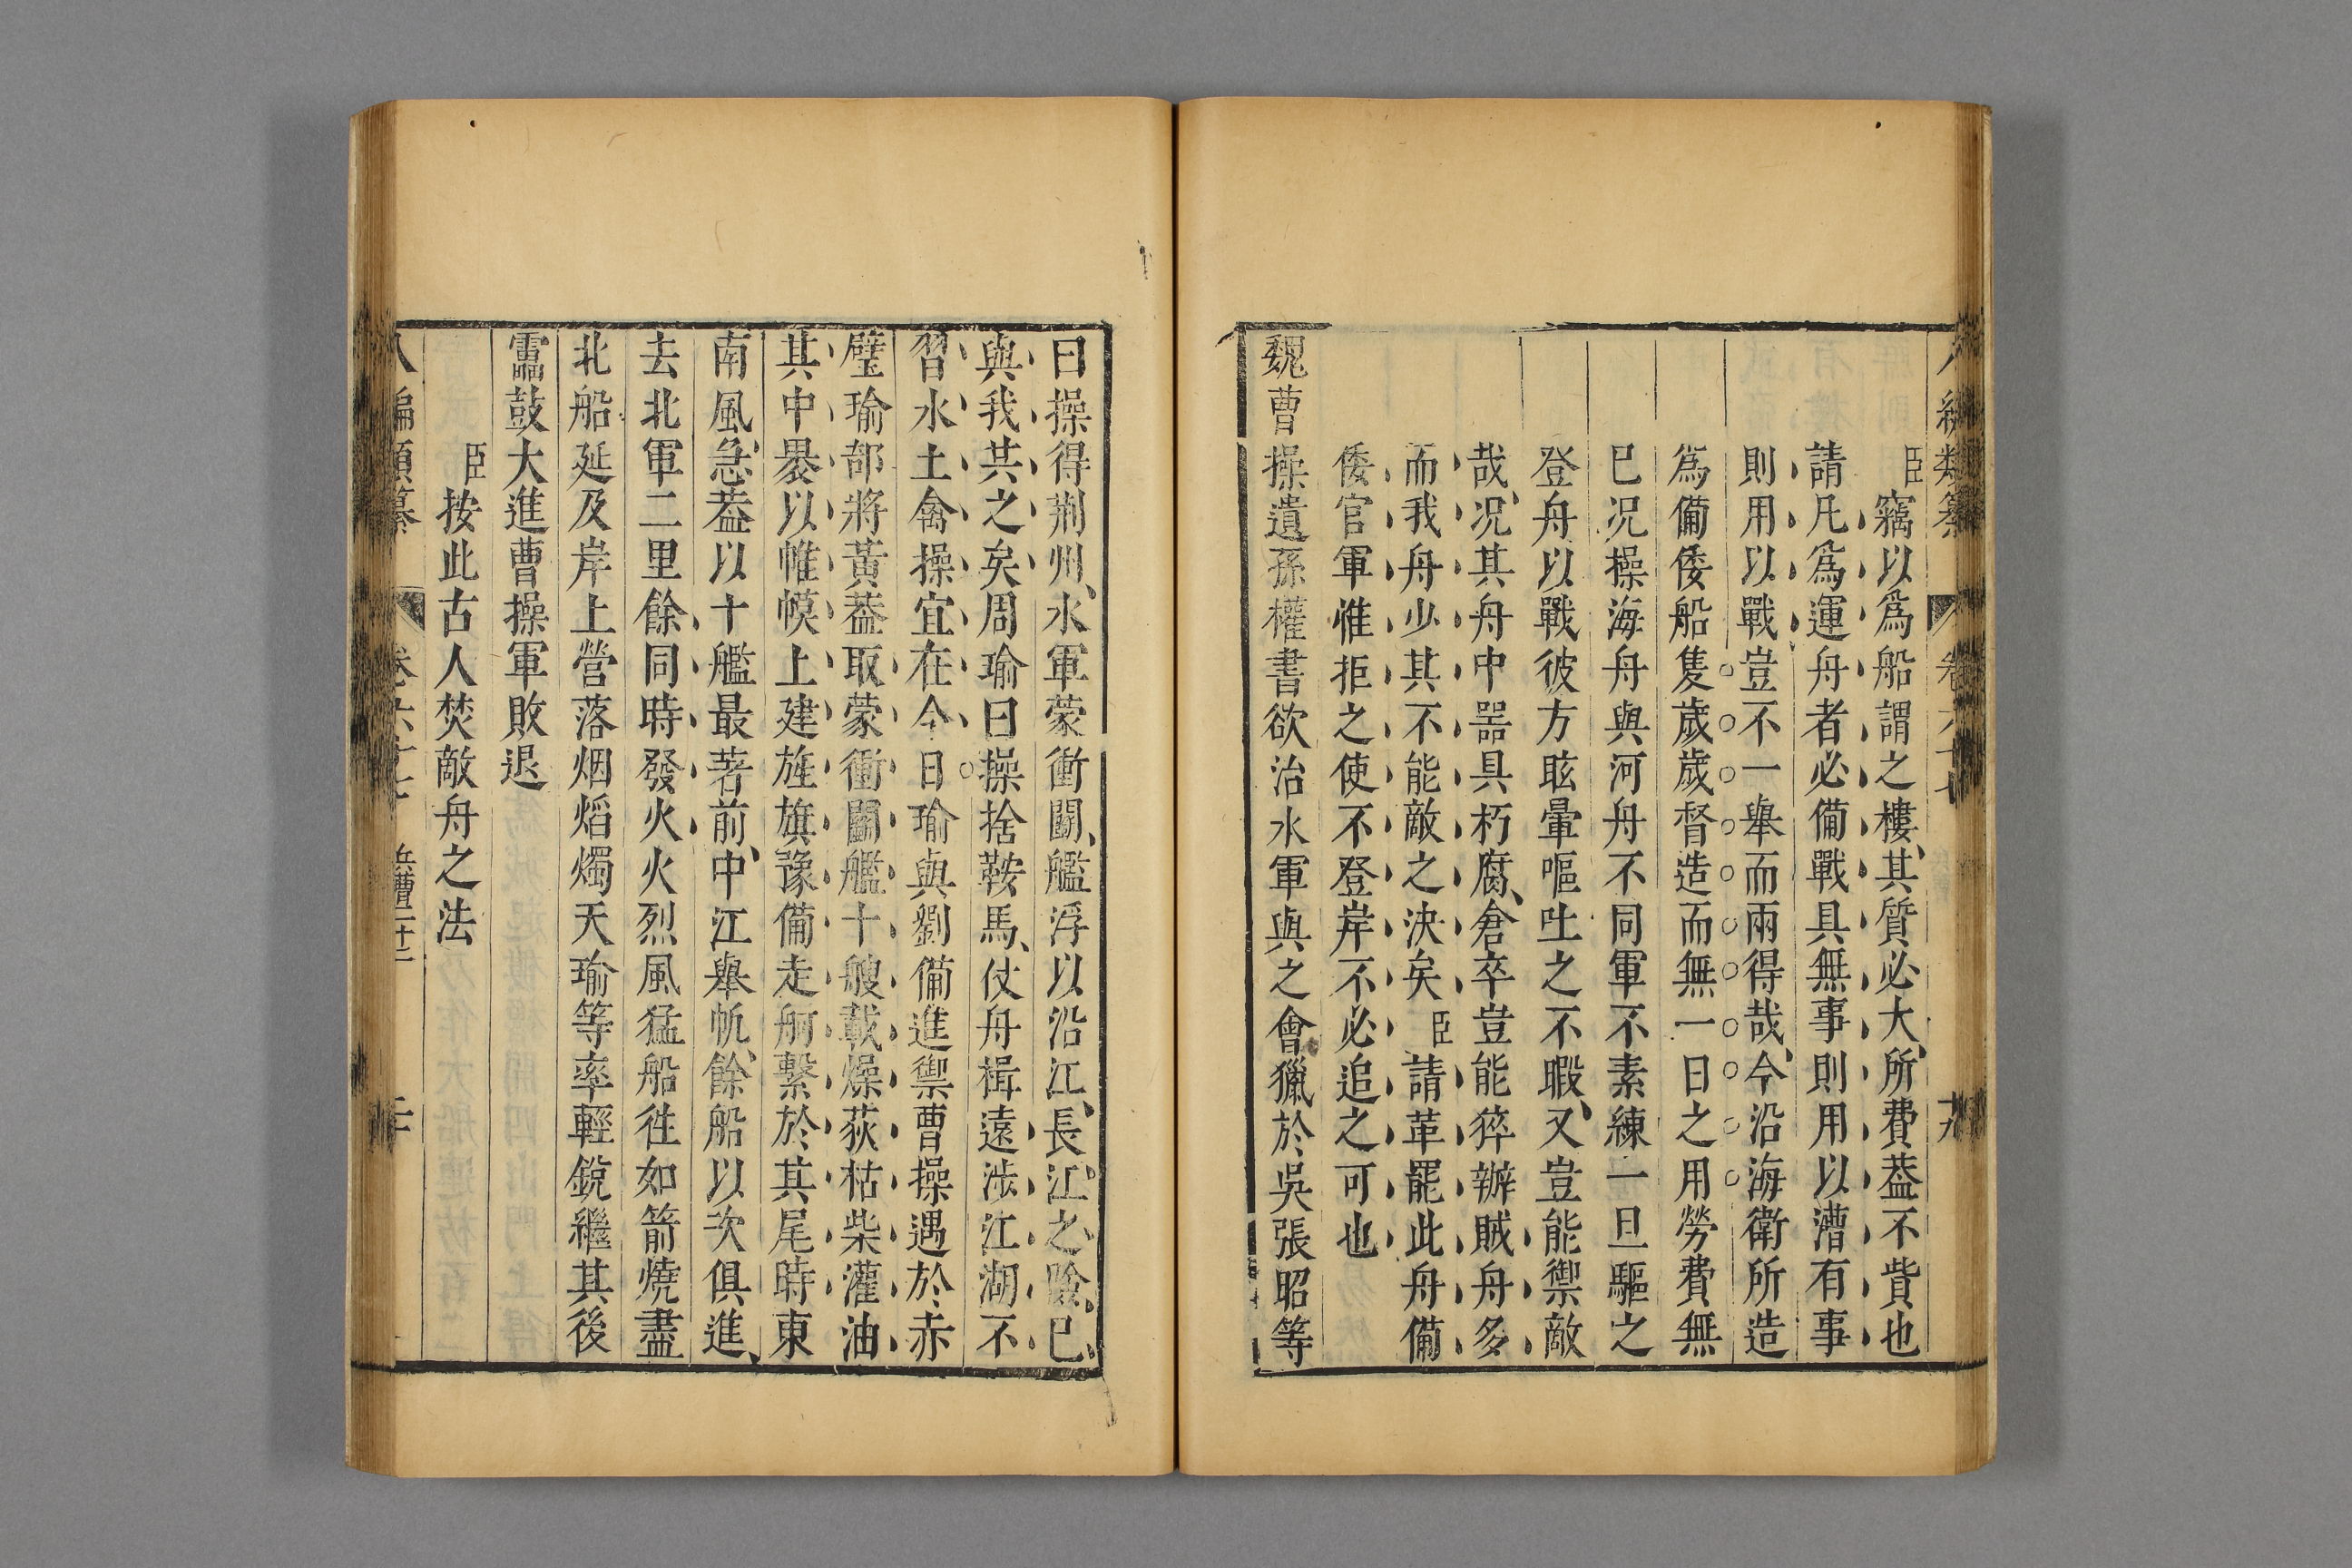 臣竊以為船謂之樓其質必大所費葢不貲也
請凡為運舟者必備戰具無事則用以漕有事
則用以戰豈不一舉而兩得哉今沿海衛所造
為備倭船隻歲歲督造而無一日之用勞費無
已况操海舟與河舟不同軍不素練一旦驅之
登舟以戰彼方眩暈嘔吐之不暇又豈能禦敵
哉况其舟中噐具朽腐倉卒豈能猝辦賊舟多
而我舟少其不能敵之决矣臣請革罷此舟備
倭官軍惟拒之使不登岸不必追之可也
魏曹操遺孫權書欲治水軍與之會獵於吳張昭等
曰操得荆州水軍蒙衝鬭艦浮以沿江長江之險已
與我共之矣周瑜曰操捨鞍馬仗舟楫遠涉江湖不
習水土禽操宜在今日瑜與劉備進禦曹操遇於赤
壁瑜部將黃葢取蒙衝鬭艦十艘載燥荻枯柴灌油
其中褁以帷幙上建旌旗豫備走舸繫於其尾時東
南風急葢以十艦最著前中江舉帆餘船以次俱進
去北軍二里餘同時發火火烈風猛船徃如箭燒盡
北船延及岸上營落烟熖燭天瑜等率輕銳繼其後
靁鼓大進曹操軍敗退
臣按此古人焚敵舟之法